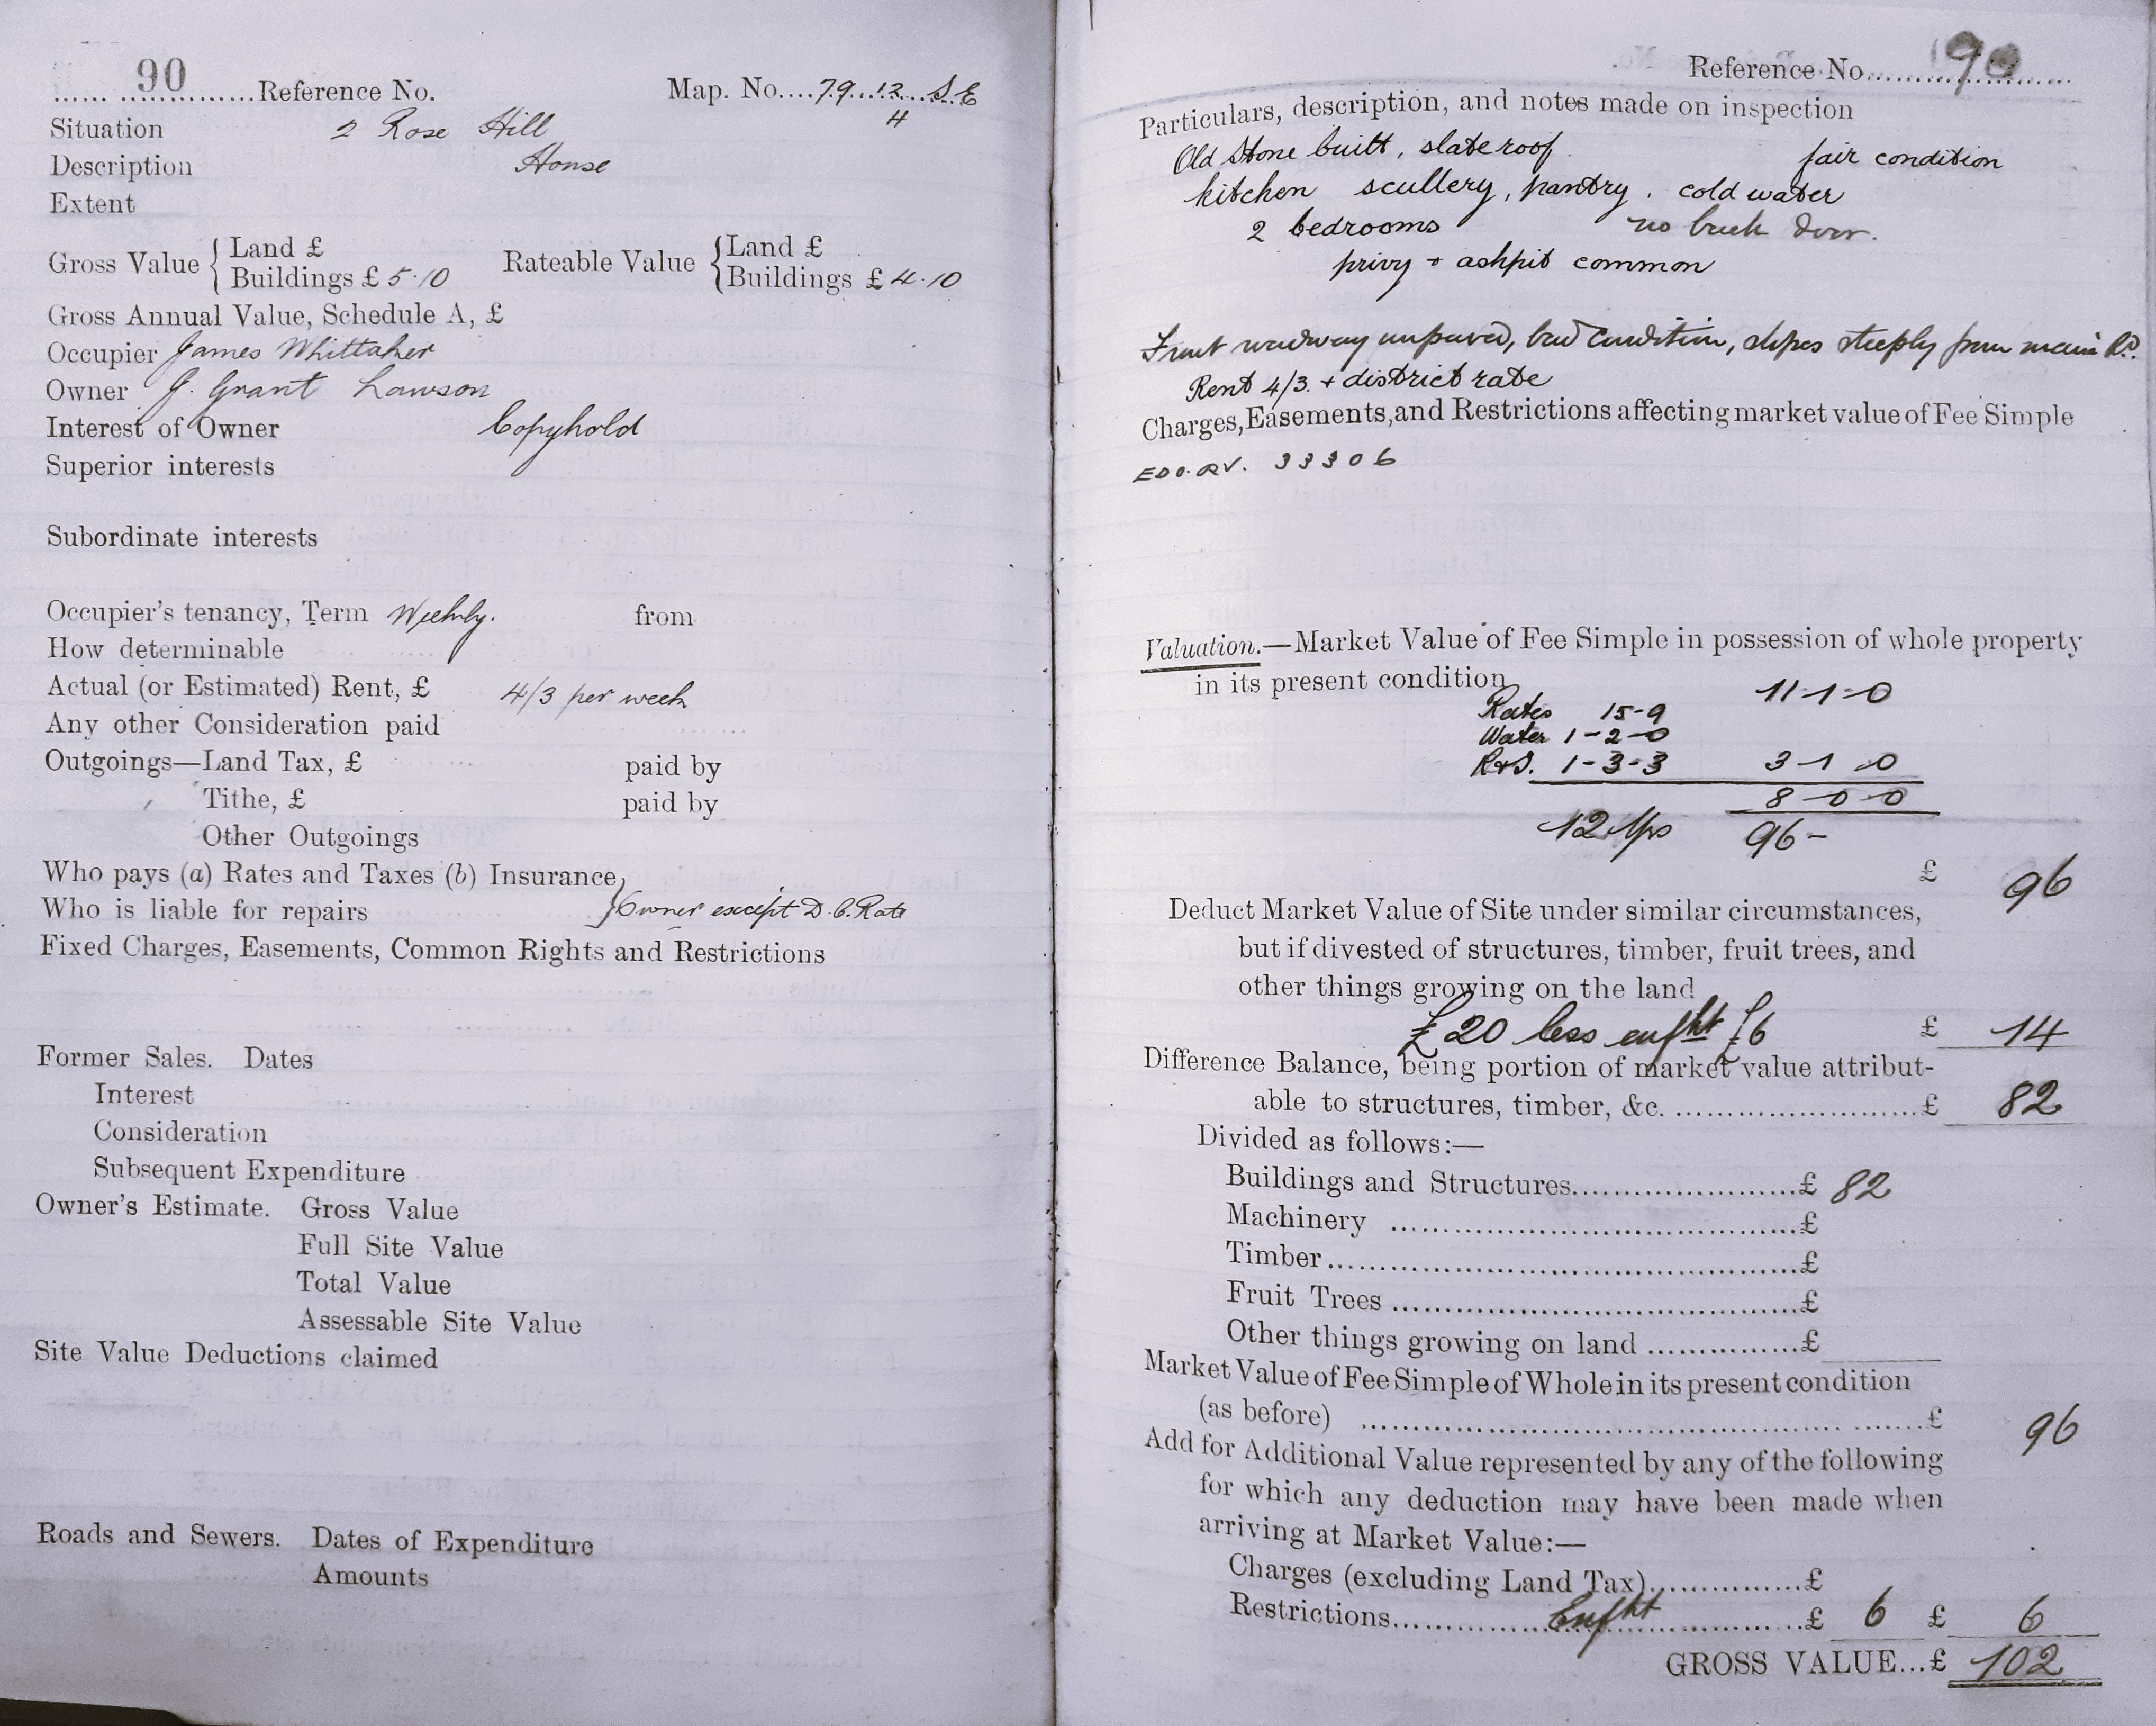 90 Reference No. Map. No. 79.12 S.E
4
Situation 2 Rose Hill
Description House
Extent
Gross Value { Land £ Rateable Value { Land £
Buildings £ 5.10 Buildings £ 4.10
Gross Annual Value, Schedule A, £
Occupier James Whittaker
Owner J. Grant Lawson
Interest of Owner Copyhold
Superior interests
Subordinate interests
Occupier's tenancy, Term Weekly. from
How determinable
Actual (or Estimated) Rent, £ 4/3 per week
Any other Consideration paid
Outgoings—Land Tax, £ paid by
Tithe, £ paid by
Other Outgoings
Who pays (a) Rates and Taxes (b) Insurance
Who is liable for repairs } Owner except D. C. Rate
Fixed Charges, Easements, Common Rights and Restrictions
Former Sales. Dates
Interest
Consideration
Subsequent Expenditure
Owner's Estimate. Gross Value
Full Site Value
Total Value
Assessable Site Value
Site Value Deductions claimed
Roads and Sewers. Dates of Expenditure
Amounts
Reference No. 90
Particulars, description, and notes made on inspection
Old Stone built, slate roof fair condition
kitchen scullery, pantry. cold water
2 bedrooms no back door.
privy + ashpit common
Front roadway unpaved, bad condition, slopes steeply from main Rd.
Rent 4/3. + district rate
Charges, Easements, and Restrictions affecting market value of Fee Simple
33306
Valuation.—Market Value of Fee Simple in possession of whole property
in its present condition
11-1-0
Rates 15-9
Water 1-2-0
R&S. 1-3-3 3-1-0
8-0-0
12 Yps 96-
£ 96
Deduct Market Value of Site under similar circumstances,
but if divested of structures, timber, fruit trees, and
other things growing on the land
£20 less enfht £6 £ 14
Difference Balance, being portion of market value attribut-
able to structures, timber, &c. ........................£ 82
Divided as follows:—
Buildings and Structures......................£ 82
Machinery ........................................£
Timber..............................................£
Fruit Trees ........................................£
Other things growing on land ...............£
Market Value of Fee Simple of Whole in its present condition
(as before) ........................................£ 96
Add for Additional Value represented by any of the following
for which any deduction may have been made when
arriving at Market Value:—
Charges (excluding Land Tax)................£
Restrictions........Enfht........£ 6 £ 6
GROSS VALUE...£ 102